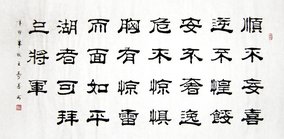 順不妄喜
逆不惶餒
安不奢逸
危不驚懼
胸有驚雷
而面如平
湖者可拜
上將軍